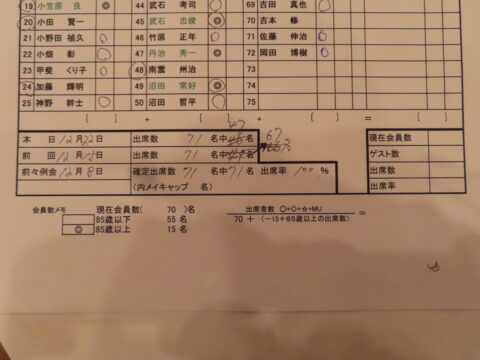 19 小笠原 良 ◎ 44 武石 考司 69 吉田 真也
20 小田 賢一 45 武石 忠俊 ◎ 70 吉本 修
21 小野田 禎久 46 竹原 正年 71 佐藤 伸治
22 小畑 彰 47 丹治 秀一 ◎ 72 岡田 博樹
23 甲斐 くり子 48 南雲 州治 73
24 加藤 輝明 49 沼田 常好 ◎ 74
25 神野 幹士 50 沼田 哲平 75
( ) + ( ) + ( ) = ( )
本 日 12月22日 出席数 71 名中 名 67 現在会員数
前 回 12月15日 出席数 71 名中 名 ゲスト数
前々例会 12月8日 確定出席数 71 名中 71 名 出席率 100 % 出席数
(内メイキャップ 名) 出席率
会員数メモ 現在会員数( 70 )名
85歳以下 55 名
◎ 85歳以上 15 名
出席者数 〇+◇+☆+MU
70 + (-15+85歳以上の出席数) =